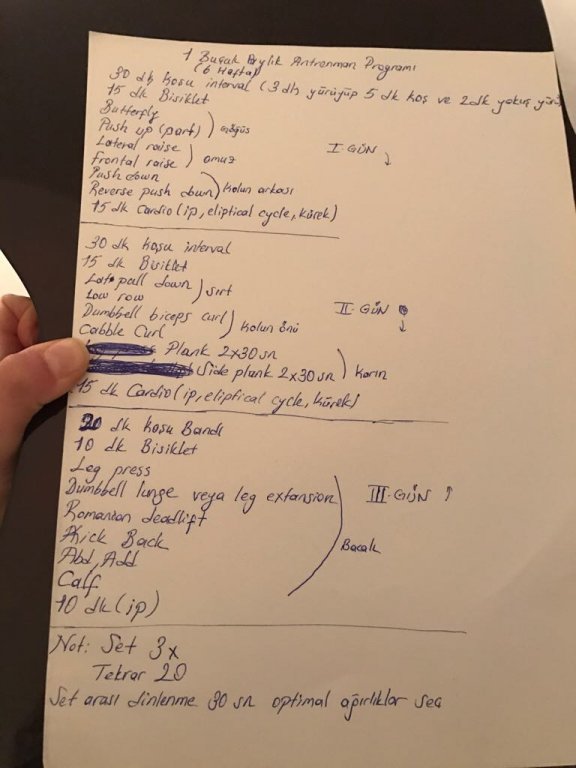 1 Buçuk Aylık Antrenman Programı
(6 Hafta)
30 dk koşu interval (3 dk yürüyüp 5 dk koş ve 2 dk yokuş
15 dk Bisiklet
Butterfly
Push up (part) ) Göğüs
Lateral raise
Frontal raise ) omuz
I GÜN ↓
Push down
Reverse push down ) Kolun arkası
15 dk Cardio (ip, eliptical cycle, kürek)
30 dk koşu interval
15 dk Bisiklet
Lat pull down
Low row ) Sırt
Dumbbell biceps curl
Cabble Curl ) Kolun önü
II. GÜN ↓
Plank 2x30 sn
Side plank 2x30 sn ) Karın
15 dk Cardio (ip, eliptical cycle, kürek)
20 dk koşu Bandı
10 dk Bisiklet
Leg press
Dumbbell lunge veya leg extansion
III. GÜN ↑
Romanian deadlift
Kick Back
Bacak
Abd, Add
Calf
10 dk (ip)
Not: Set 3x
Tekrar 20
Set arası dinlenme 30 sn optimal ağırlıklar seç